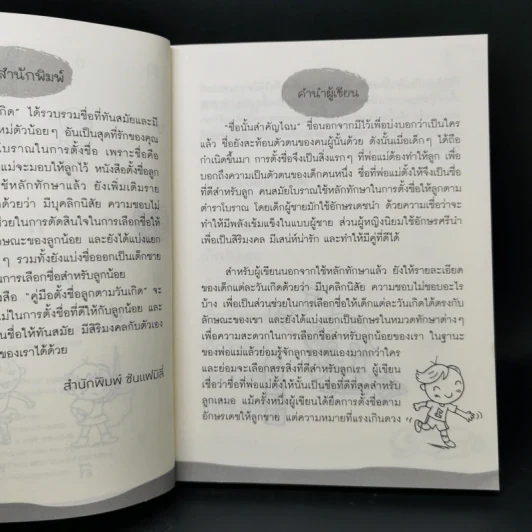 สำนักพิมพ์
เกิด" ได้รวบรวมชื่อที่ทันสมัยและมี
ใหม่ตัวน้อยๆ อันเป็นสุดที่รักของคุณ
โบราณในการตั้งชื่อ เพราะชื่อคือ
แม่จะมอบให้ลูกไว้ หนังสือตั้งชื่อลูก
ใช้หลักทักษาแล้ว ยังเพิ่มเติมราย
ด้วยว่า มีบุคลิกนิสัย ความชอบไม่
ช่วยในการตัดสินใจในการเลือกชื่อให้
ลักษณะของลูกน้อย และยังได้แบ่งแยก
ๆ รวมทั้งยังแบ่งชื่อออกเป็นเด็กชาย
ในการเลือกชื่อสำหรับลูกน้อย
สือ "คู่มือตั้งชื่อลูกตามวันเกิด" จะ
ไม่ในการตั้งชื่อที่ดีให้กับลูกน้อย และ
นชื่อให้ทันสมัย มีสิริมงคลกับตัวเอง
ของเราได้ด้วย
สำนักพิมพ์ ซันแฟมิลี่
คำนำผู้เขียน
"ชื่อนั้นสำคัญไฉน" ชื่อนอกจากมีไว้เพื่อบ่งบอกว่าเป็นใคร
แล้ว ชื่อยังสะท้อนตัวตนของคนผู้นั้นด้วย ดังนั้นเมื่อเด็กๆ ได้ถือ
กำเนิดขึ้นมา การตั้งชื่อจึงเป็นสิ่งแรกๆ ที่พ่อแม่ต้องทำให้ลูก เพื่อ
บอกถึงความเป็นตัวตนของเด็กคนหนึ่ง ชื่อที่พ่อแม่ตั้งให้จึงเป็นชื่อ
ที่ดีสำหรับลูก คนสมัยโบราณใช้หลักทักษาในการตั้งชื่อให้ลูกตาม
ตำราโบราณ โดยเด็กผู้ชายมักใช้อักษรเดชนำ ด้วยความเชื่อว่าจะ
ทำให้มีพลังเข้มแข็งในแบบผู้ชาย ส่วนผู้หญิงนิยมใช้อักษรศรีนำ
เพื่อเป็นสิริมงคล มีเสน่ห์น่ารัก และทำให้มีคู่ที่ดีได้
สำหรับผู้เขียนนอกจากใช้หลักทักษาแล้ว ยังให้รายละเอียด
ของเด็กแต่ละวันเกิดด้วยว่า มีบุคลิกนิสัย ความชอบไม่ชอบอะไร
บ้าง เพื่อเป็นส่วนช่วยในการเลือกชื่อให้เด็กแต่ละวันเกิดได้ตรงกับ
ลักษณะของเขา และยังได้แบ่งแยกเป็นอักษรในหมวดทักษาต่างๆ
เพื่อความสะดวกในการเลือกชื่อสำหรับลูกน้อยของเรา ในฐานะ
ของพ่อแม่แล้วย่อมรู้จักลูกของตนเองมากกว่าใคร
และย่อมจะเลือกสรรสิ่งที่ดีสำหรับลูกเรา ผู้เขียน
เชื่อว่าชื่อที่พ่อแม่ตั้งให้นั้นเป็นชื่อที่ดีที่สุดสำหรับ
ลูกเสมอ แม้ครั้งหนึ่งผู้เขียนได้ยึดการตั้งชื่อตาม
อักษรเดชให้ลูกชาย แต่ความหมายที่แรงเกินดวง